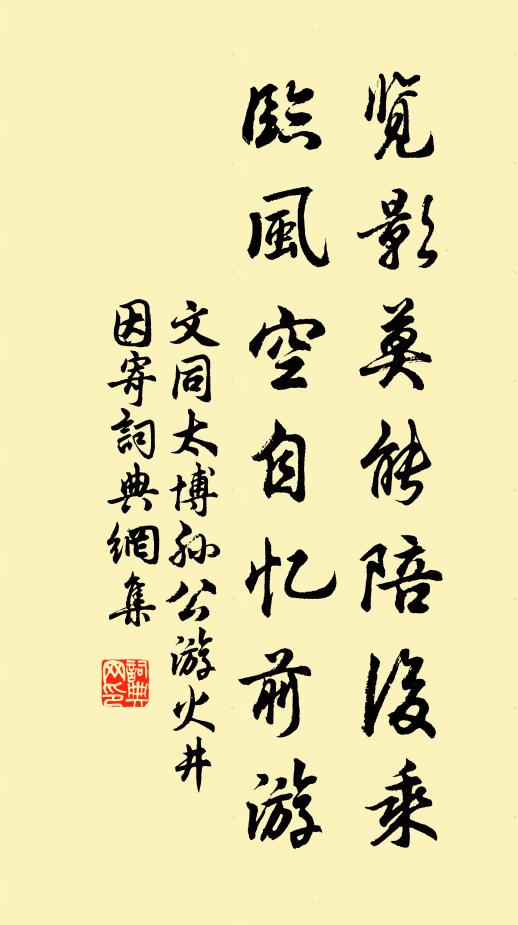 览影莫能陪後乘
臨風空自忆前游
文同太博孙公游火井
因寄詞典網集
詞典网印